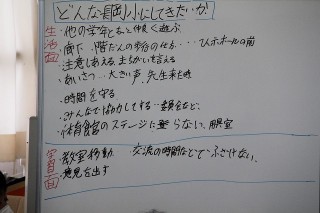 どんな岡小にしてきたいか
生活面
・他の学年ともっと仲良く遊ぶ
・廊下、階だんの歩行のしかた…ひホポールの前
・注意しあえる、土ちがいを言える
・あいさつ…大きい声、先生来た時
・時間を守る
・みんなで協力してする…委員会など、
・体育館のステージに登らない、用具室
学習面
・教室移動 交流の時間などで、ふざけない、
・意見を出す